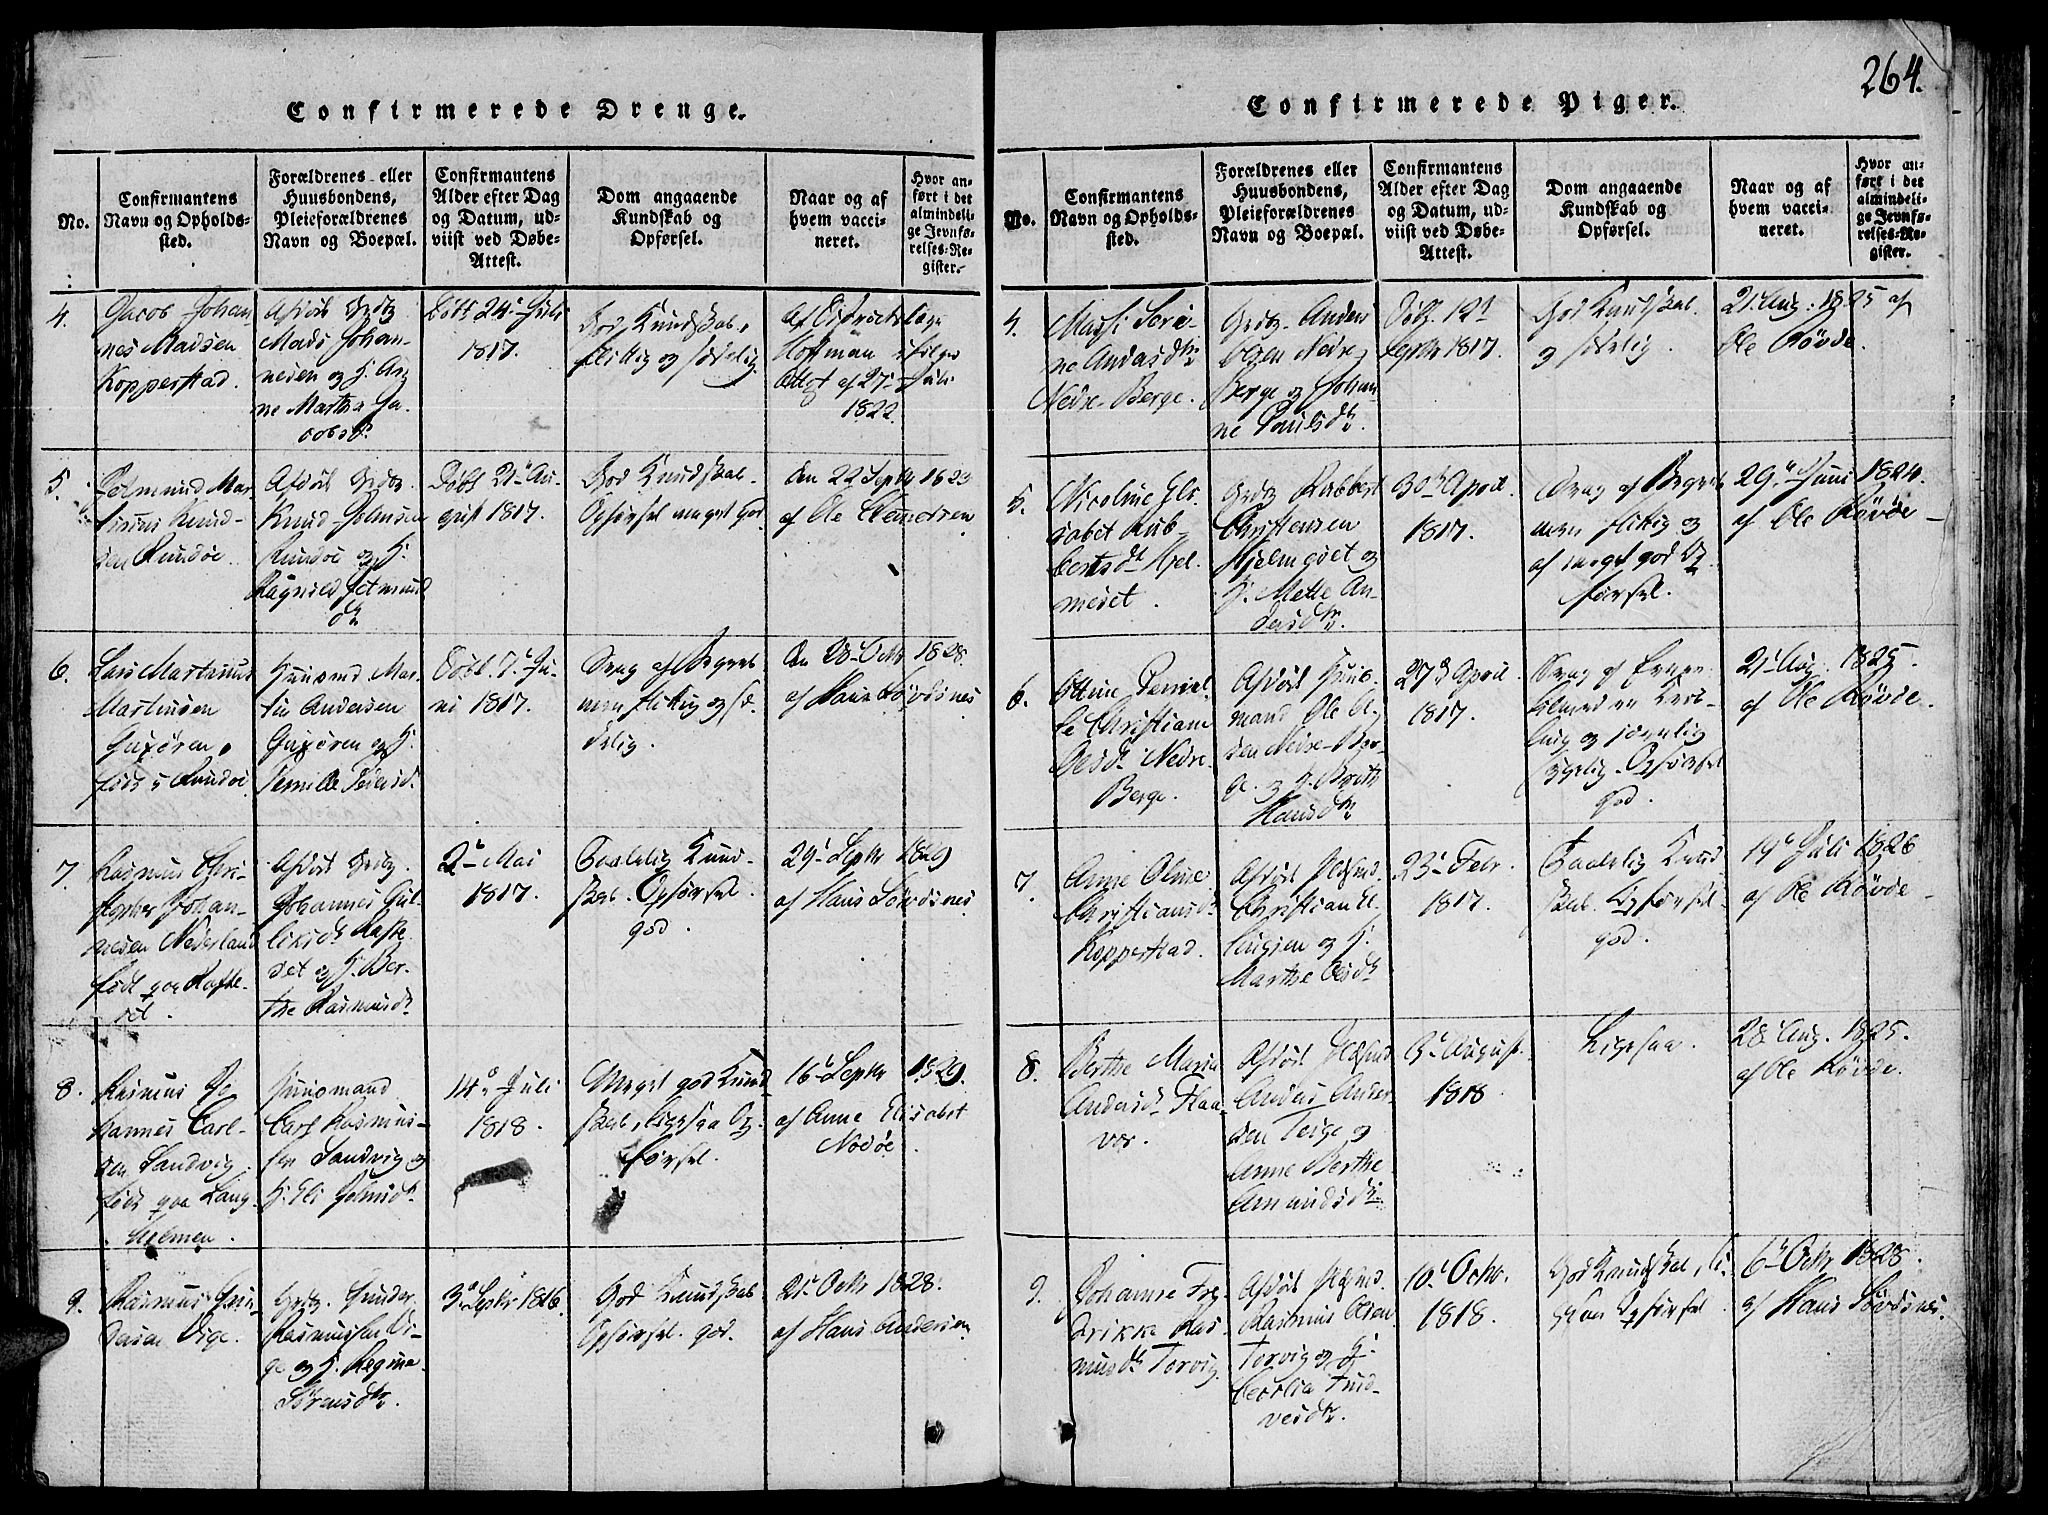 264.
Confirmerede Drenge.
No.
Confirmantens
Navn og Opholds-
sted.
Forældrenes eller
Huusbondens,
Pleieforældrenes
Navn og Boepæl.
Confirmantens
Alder efter Dag
og Datum, ud-
viist ved Døbe-
Attest.
Dom angaaende
Kundskab og
Opførsel.
Naar og af
hvem vacci-
neret.
Hvor an-
ført i det
almindeli-
ge Jevnfø-
relses-Re-
gister.
4.
Jacob Johan-
nes Madsen
Kopperstad.
Afdød Grdbr.
Mads Johan-
nesen og H. An-
ne Martha Ja-
cobsdr.
Døbt 24de Juli
1817.
God Kundskab,
flittig og sædelig
Af Districtslæge
Hoffman ifølge
Attest af 27de Juli
1822.
5.
Mar-
tinus Knud-
sen Rundøe.
Afdød Grdbr.
Knud Johnsen
Rundøe og H.
Ragnild Setmund
dr.
Døbt 21de Au-
gust 1817.
God Kundskab.
Opførsel meget god
den 22 Septbr 1823
af Ole Clemetsen
6.
Lars Martinus
Martinsen
født i Rundøe
Huusmd Mar-
tin Andersen
og H.
Pernille Pedersd.
Døbt 7de Ju-
ni 1817.
Svag af Begreb
men flittig og sæ-
delig.
den 28de Octbr 1828.
af Hans Sørdsnes
7.
Rasmus Chri-
stopher Johan-
nesen Nederland
født paa Rafte-
set.
Afdød Grdbr.
Johannes Gul-
Rafte-
set og H. Ber-
the Rasmusdr.
2de Mai
1817.
Taalelig Kund-
skab. Opførsel
god.
29de Septbr 1829
af Hans Sørdsnes
8.
Rasmus Jo-
hannes Carl-
sen Sandvig
født paa Lang-
holmen.
Huusmand
Carl Rasmus-
sen Sandvig og
H. Eli
14de Juli
1818.
Meget god Kund
skab, ligesaa Op-
førsel.
16de Septbr 1829.
af Anne Elisabet
Nodøe.
9.
Rasmus Gun-
dersen Dige.
Grdbr. Gunder
Rasmussen Di-
ge og H. Regine
Sørensdr.
3de Septbr 1816.
God Kundskab
Opførsel god.
21de Octbr 1828.
af Hans Andersen
Confirmerede Piger.
No.
Confirmantens
Navn og Opholds-
sted.
Forældrenes eller
Huusbondens,
Pleieforældrenes
Navn og Boepæl.
Confirmantens
Alder efter Dag
og Datum, ud-
viist ved Døbe-
Attest.
Dom angaaende
Kundskab og
Opførsel.
Naar og af
hvem vacci-
neret.
Hvor an-
ført i det
almindeli-
ge Jevnfø-
relses-Re-
gister.
4.
Massi Seri-
ne Andersdr.
Nedre-Berge.
Grdbr. Anders
Olsen Nedre-
Berge og Johan-
ne Poulsdr.
Døbt 12te
Septbr 1817.
God Kundskab
og sædelig.
21. Aug. 1825 af
Ole Røvde.
5.
Nicoline Eli-
sabet Rub-
bertsdr. Hjel-
meset.
Grdbr. Rubbert
Christensen
Hjelmeset og
H. Mette An-
dersdr.
30te April.
1817.
Svag af Begreb
men flittig og
af meget god Op-
førsel.
29de Juni 1824.
af Ole Røvde
6.
Ottine Pernil-
le Christiane
Olesdr. Nedre-
Berge.
Afdød Huus-
mand Ole
Nedre-Ber-
ge. og H. Berith
Hansdr.
27de April
1817.
Svag af
og
Opførsel
god.
21de Aug. 1825.
af Ole Røvde.
7.
Anne Oline
Christiansdr.
Kopperstad.
Afdød
Christian El-
lingsen og H.
Marthe Olesdr.
23de Febr.
1817.
Taalelig Kund-
skab. Opførsel
god.
19de Juli 1826
af Ole Røvde
8.
Berthe Maria
Andersdr. Flaa-
vær.
Afdød
Anders Ander-
sen Teige og
Anne Berthe
Amundsdr.
3de August.
1818
Ligesaa.
28de Aug. 1825.
af Ole Røvde.
9.
Johanne Fre-
drikke Ras-
musdr. Torvig
Afdød
Rasmus Olsen
Torvig og H.
Cecilia Knud-
vesdr.
10de Octbr.
1818.
God Kundskab, li-
gesaa Opførsel
6te Octbr 1828.
af Hans Sørdsnes.